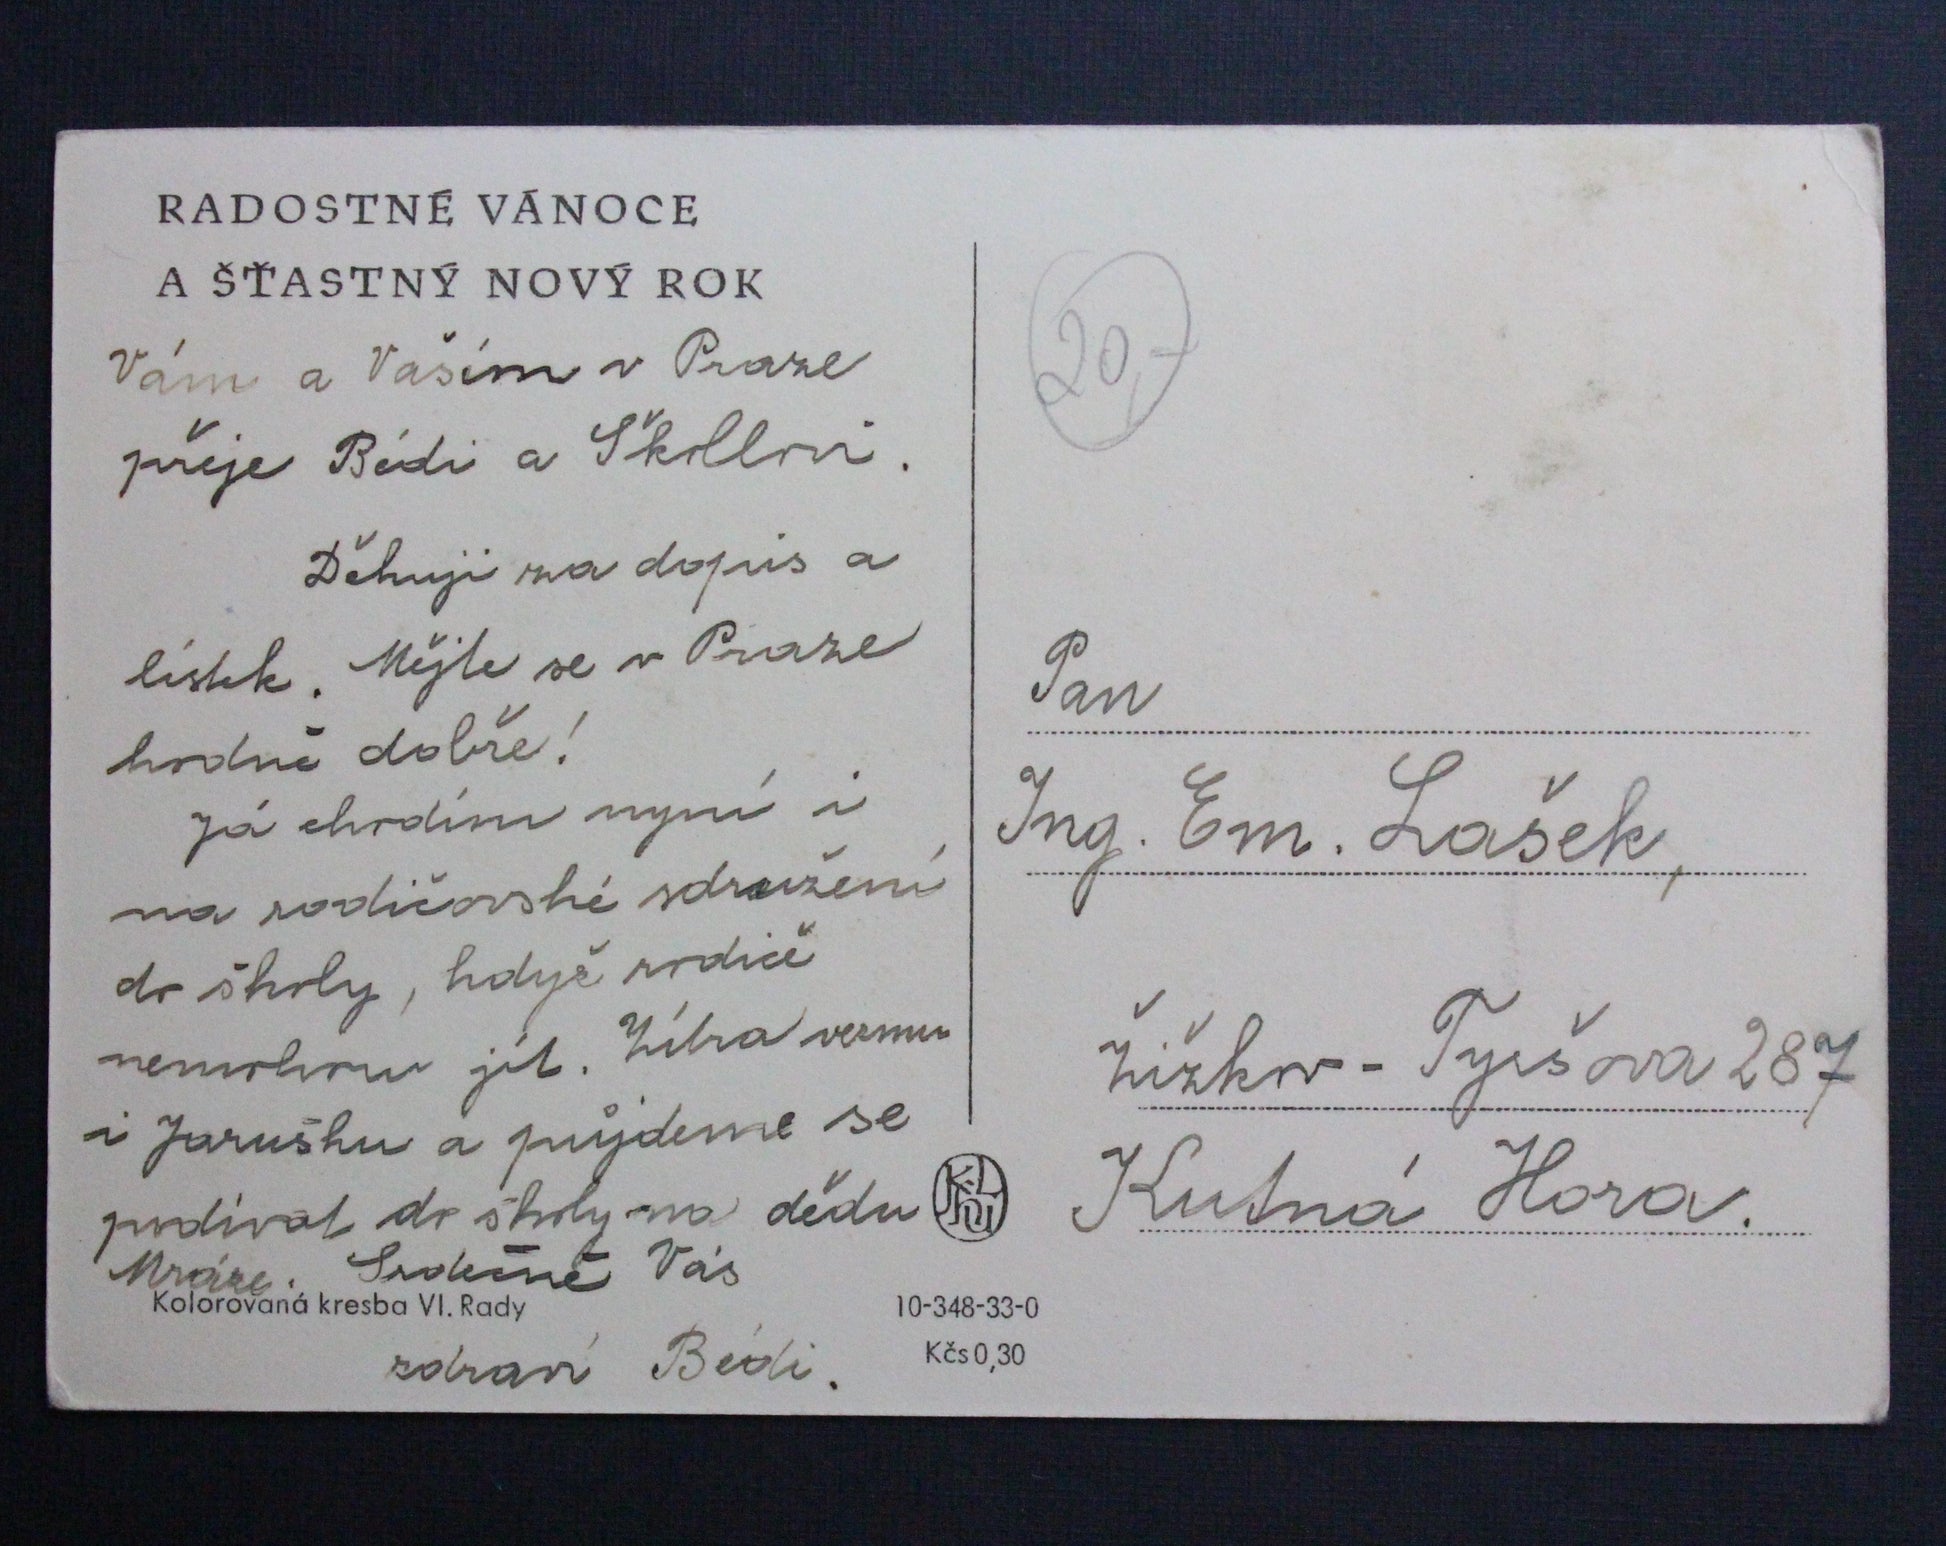 RADOSTNÉ VÁNOCE
A ŠŤASTNÝ NOVÝ ROK
Vám a Vaším v Praze
přeje Bédi a Školloví.
Děkuji za dopis a
lístek. Mějte se v Praze
hodně dobře!
Já chodím nyní i
na rodičovské sdružení
do školy, když rodiče
nemohou jít. Zítra vezmu
i Jarušku a půjdeme se
podívat do školy na dědu
Mráze. Srdečně Vás
Kolorovaná kresba Vl. Rady
zdraví Bédi.
10-348-33-0
Kčs 0,30
20,-
Pan
Ing. Em. Lašek,
Žižkov - Tyršova 287
Kutná Hora.